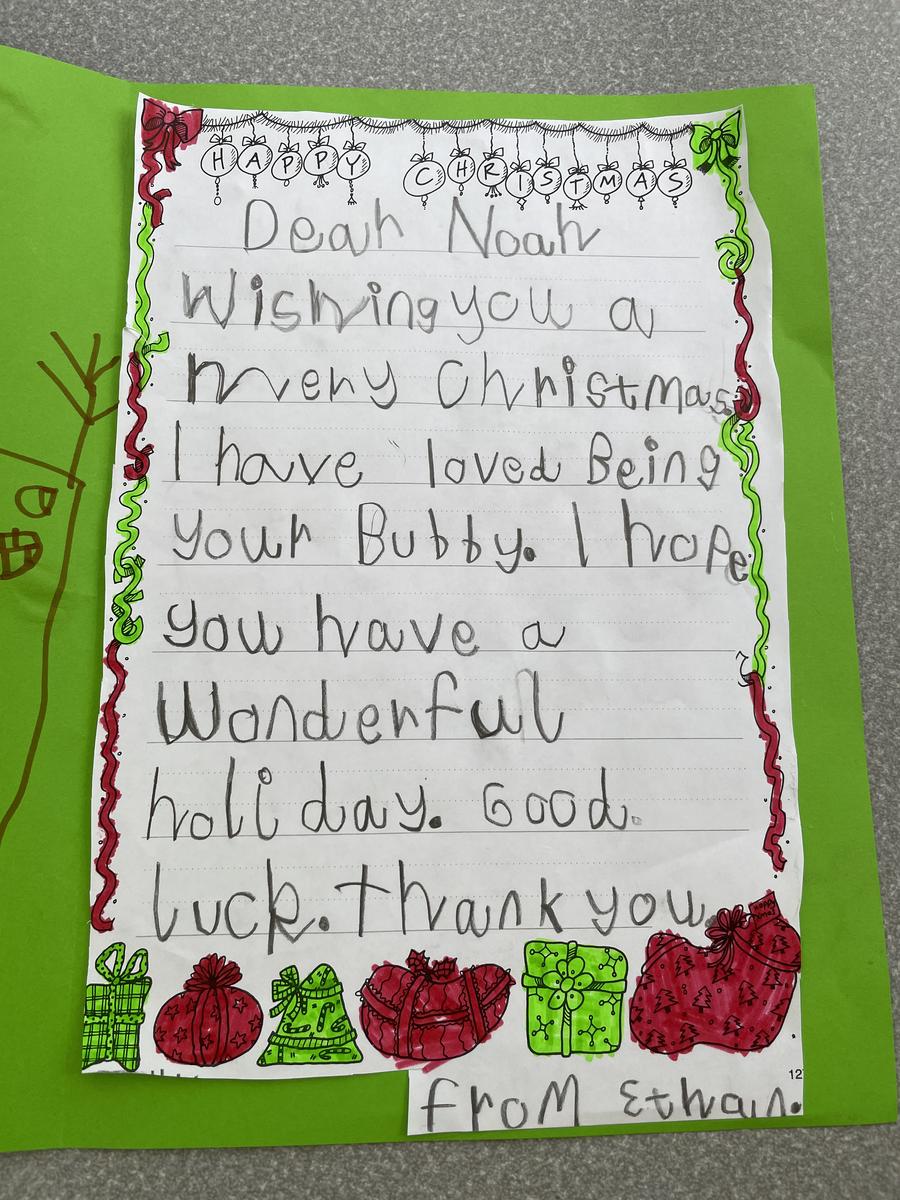 HAPPY CHRISTMAS
Dear Noah
Wishing you a
mery Christmas.
I have loved Being
your Bubby. I hope
you have a
Wonderful
holiday. Good.
luck. thank you.
12
from Ethan.